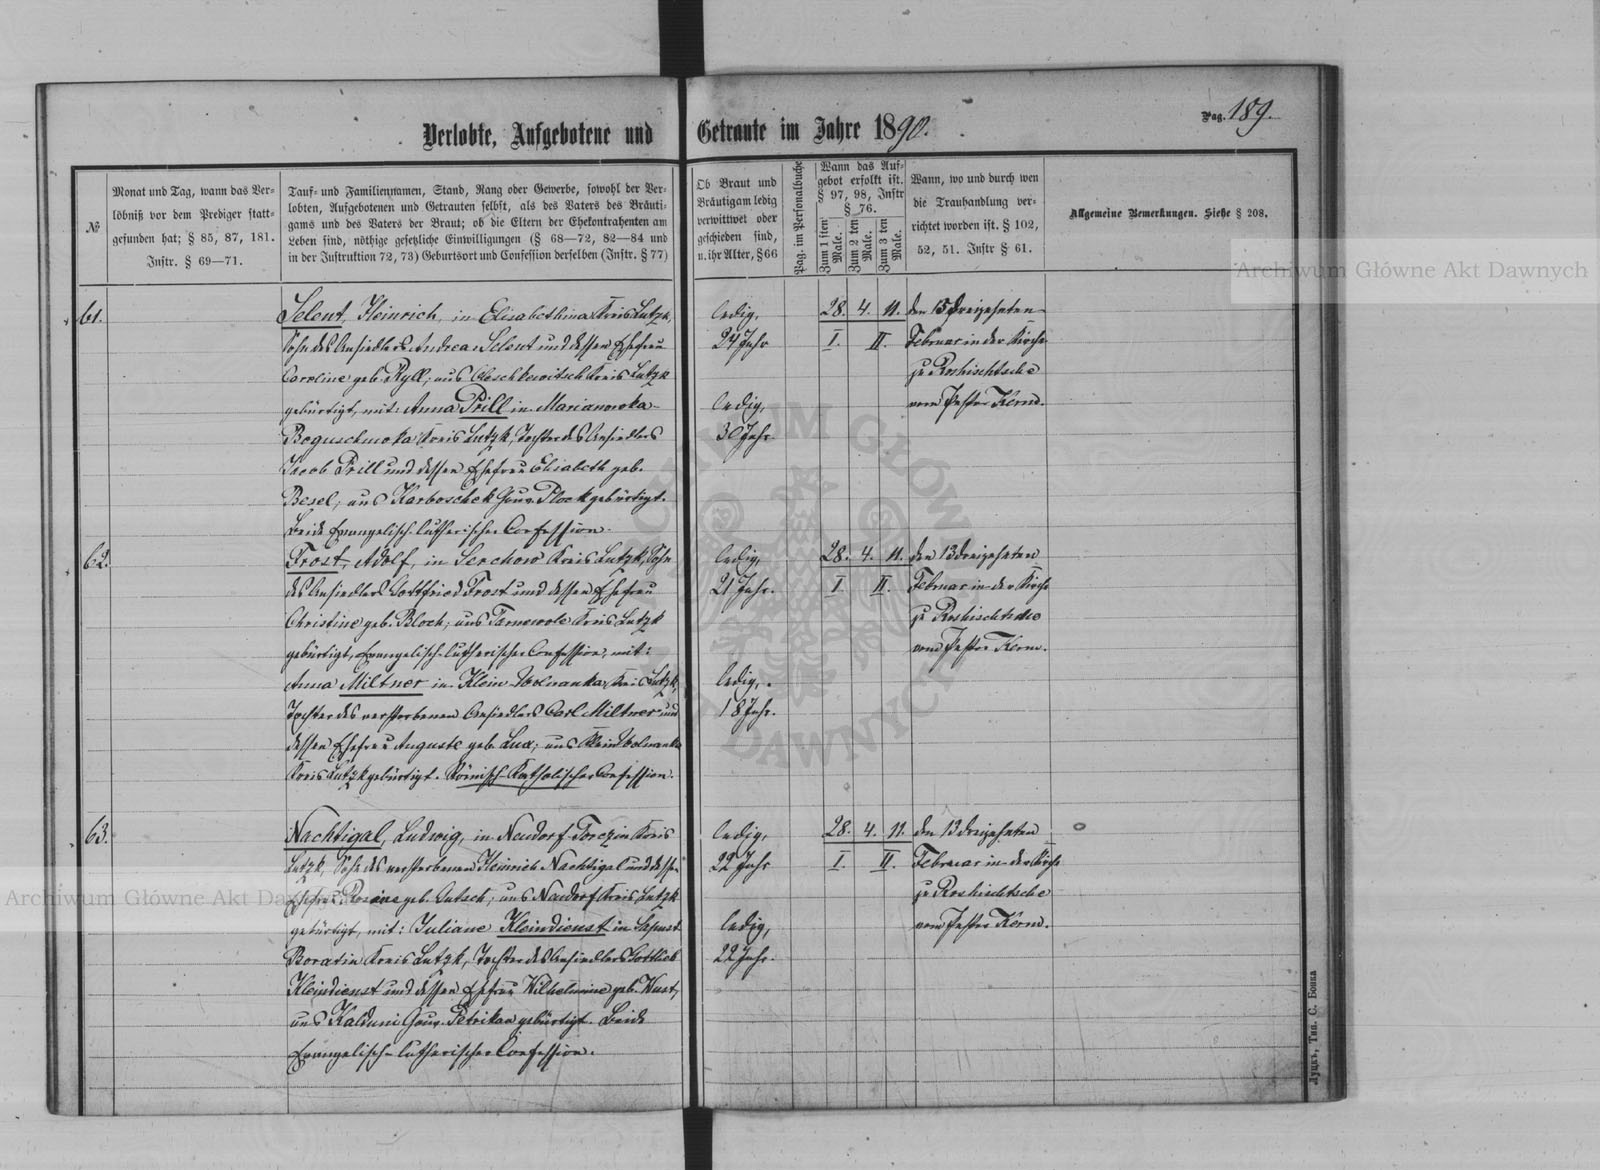 Pag. 189.
Verlobte, Aufgebotene und Getraute im Jahre 1890.
№
Monat und Tag, wann das Ver-
löbniß vor dem Prediger statt-
gefunden hat; § 85, 87, 181.
Instr. § 69—71.
Tauf- und Familiennamen, Stand, Rang oder Gewerbe, sowohl der Ver-
lobten, Aufgebotenen und Getrauten selbst, als des Vaters des Bräuti-
gams und des Vaters der Braut; ob die Eltern der Ehekontrahenten am
Leben sind, nöthige gesetzliche Einwilligungen (§ 68—72, 82—84 und
in der Instruktion 72, 73) Geburtsort und Confession derselben (Instr. § 77)
Ob Braut und
Bräutigam ledig
verwittwet oder
geschieden sind,
u. ihr Alter, § 66
Pag. im Personalbuche
Wann das Auf-
gebot erfolkt ist.
§ 97, 98, Instr
§ 76.
Zum 1 sten
Male.
Zum 2 ten
Male.
Zum 3 ten
Male.
Wann, wo und durch wen
die Trauhandlung ver-
richtet worden ist. § 102,
52, 51. Instr § 61.
Allgemeine Bemerkungen. Siehe § 208.
61.
Selent, Heinrich, in Elisabethina Kreis Lutzk,
Sohn des Ansiedlers Andreas Selent und dessen Ehefrau
Caroline geb. Ryll; aus Kreis Lutzk
gebürtigt, mit: Anna Prill in Marianowka-
Boguschowka Kreis Lutzk, Tochter des Ansiedlers
Jacob Prill und dessen Ehefrau Elisabeth geb.
Besel; aus Karboschek Gouv. Plock gebürtigt.
Beide Evangelisch-lutherischer Confession.
ledig,
24 Jahr
ledig,
30 Jahr.
28. 4. 11.
I. II.
den 13 dreizehnten
Februar in der Kirche
zu Roshischtsche
vom Pastor Kerm.
62.
Frost, Adolf, in Serchow Kreis Lutzk, Sohn
des Ansiedlers Gottfried Frost und dessen Ehefrau
Christine geb. Bloch; aus Tarnowole Kreis Lutzk
gebürtigt, Evangelisch-lutherischer Confession, mit:
Anna Miltner in Klein-Wolnanka Kreis Lutzk,
Tochter des verstorbenen Ansiedlers Carl Miltner und
dessen Ehefrau Auguste geb. Lux; aus Klein Wolnanka
Kreis Lutzk gebürtigt. Römisch-Katholischer Confession.
ledig,
21 Jahr.
ledig,
18 Jahr.
28. 4. 11.
I. II.
den 13 dreizehnten
Februar in der Kirche
zu Roshischtsche
vom Pastor Kerm.
63.
Nachtigal, Ludwig, in Neudorf-Torczin Kreis
Lutzk, Sohn des verstorbenen Heinrich Nachtigal und dessen
Ehefrau Rosine geb. Gutsch; aus Neudorf Kreis Lutzk
gebürtigt, mit: Juliane Kleindienst in Sapust
Boratin Kreis Lutzk, Tochter des Ansiedlers Gottlieb
Kleindienst und dessen Ehefrau Wilhelmine geb. Wust,
aus Kalduni Gouv. Petrikau gebürtigt. Beide
Evangelisch-lutherischer Confession.
ledig,
22 Jahr
ledig,
22 Jahr.
28. 4. 11.
I. II.
den 13 dreizehnten
Februar in der Kirche
zu Roshischtsche
vom Pastor Kerm.
Луцкъ, Тип. С. Бонка
Archiwum Główne Akt Dawnych
Archiwum Główne Akt Dawnych
ARCHIWUM GŁÓWNE
AKT DAWNYCH